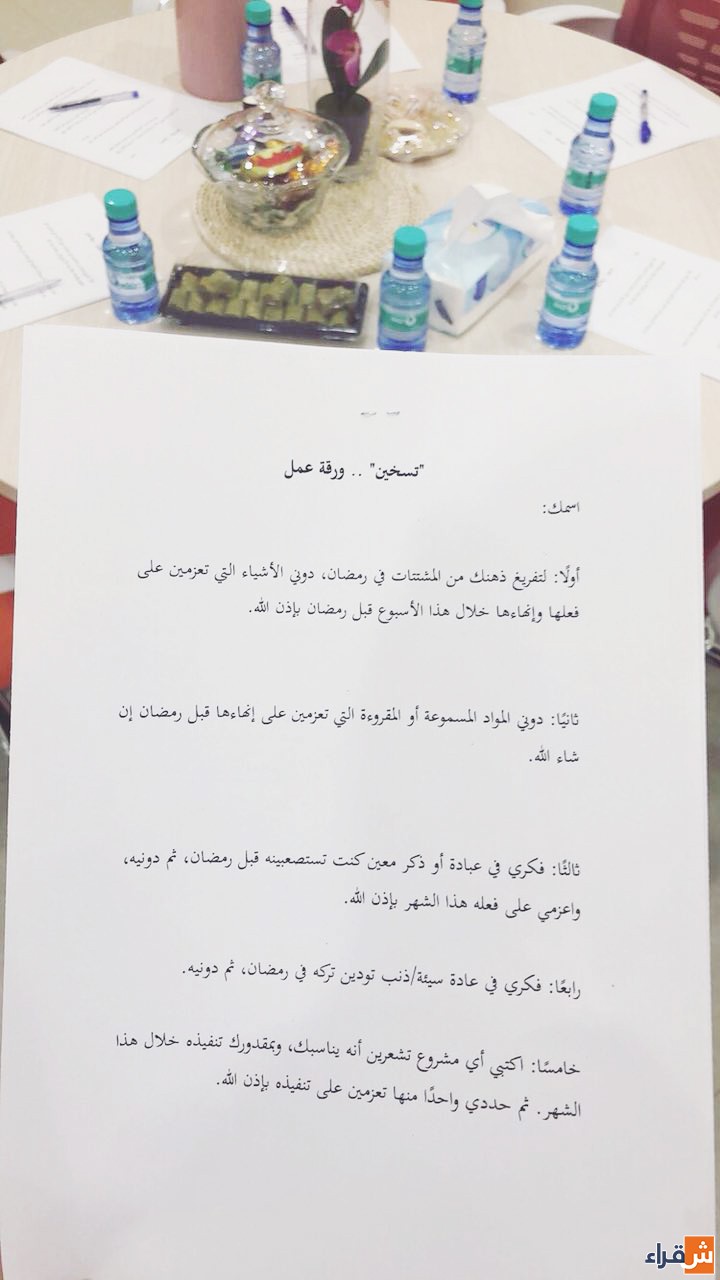 "تسخين" .. ورقة عمل
اسمك:
أولًا: لتفريغ ذهنك من المشتتات في رمضان، دوني الأشياء التي تعزمين على
فعلها وإنهاءها خلال هذا الأسبوع قبل رمضان بإذن الله.
ثانيًا: دوني المواد المسموعة أو المقروءة التي تعزمين على إنهاءها قبل رمضان إن
شاء الله.
ثالثًا: فكري في عبادة أو ذكر معين كنت تستصعبينه قبل رمضان، ثم دونيه،
واعزمي على فعله هذا الشهر بإذن الله.
رابعًا: فكري في عادة سيئة/ذنب تودين تركه في رمضان، ثم دونيه.
خامسًا: اكتبي أي مشروع تشعرين أنه يناسبك، وبمقدورك تنفيذه خلال هذا
الشهر. ثم حددي واحدًا منها تعزمين على تنفيذه بإذن الله.
شقراء